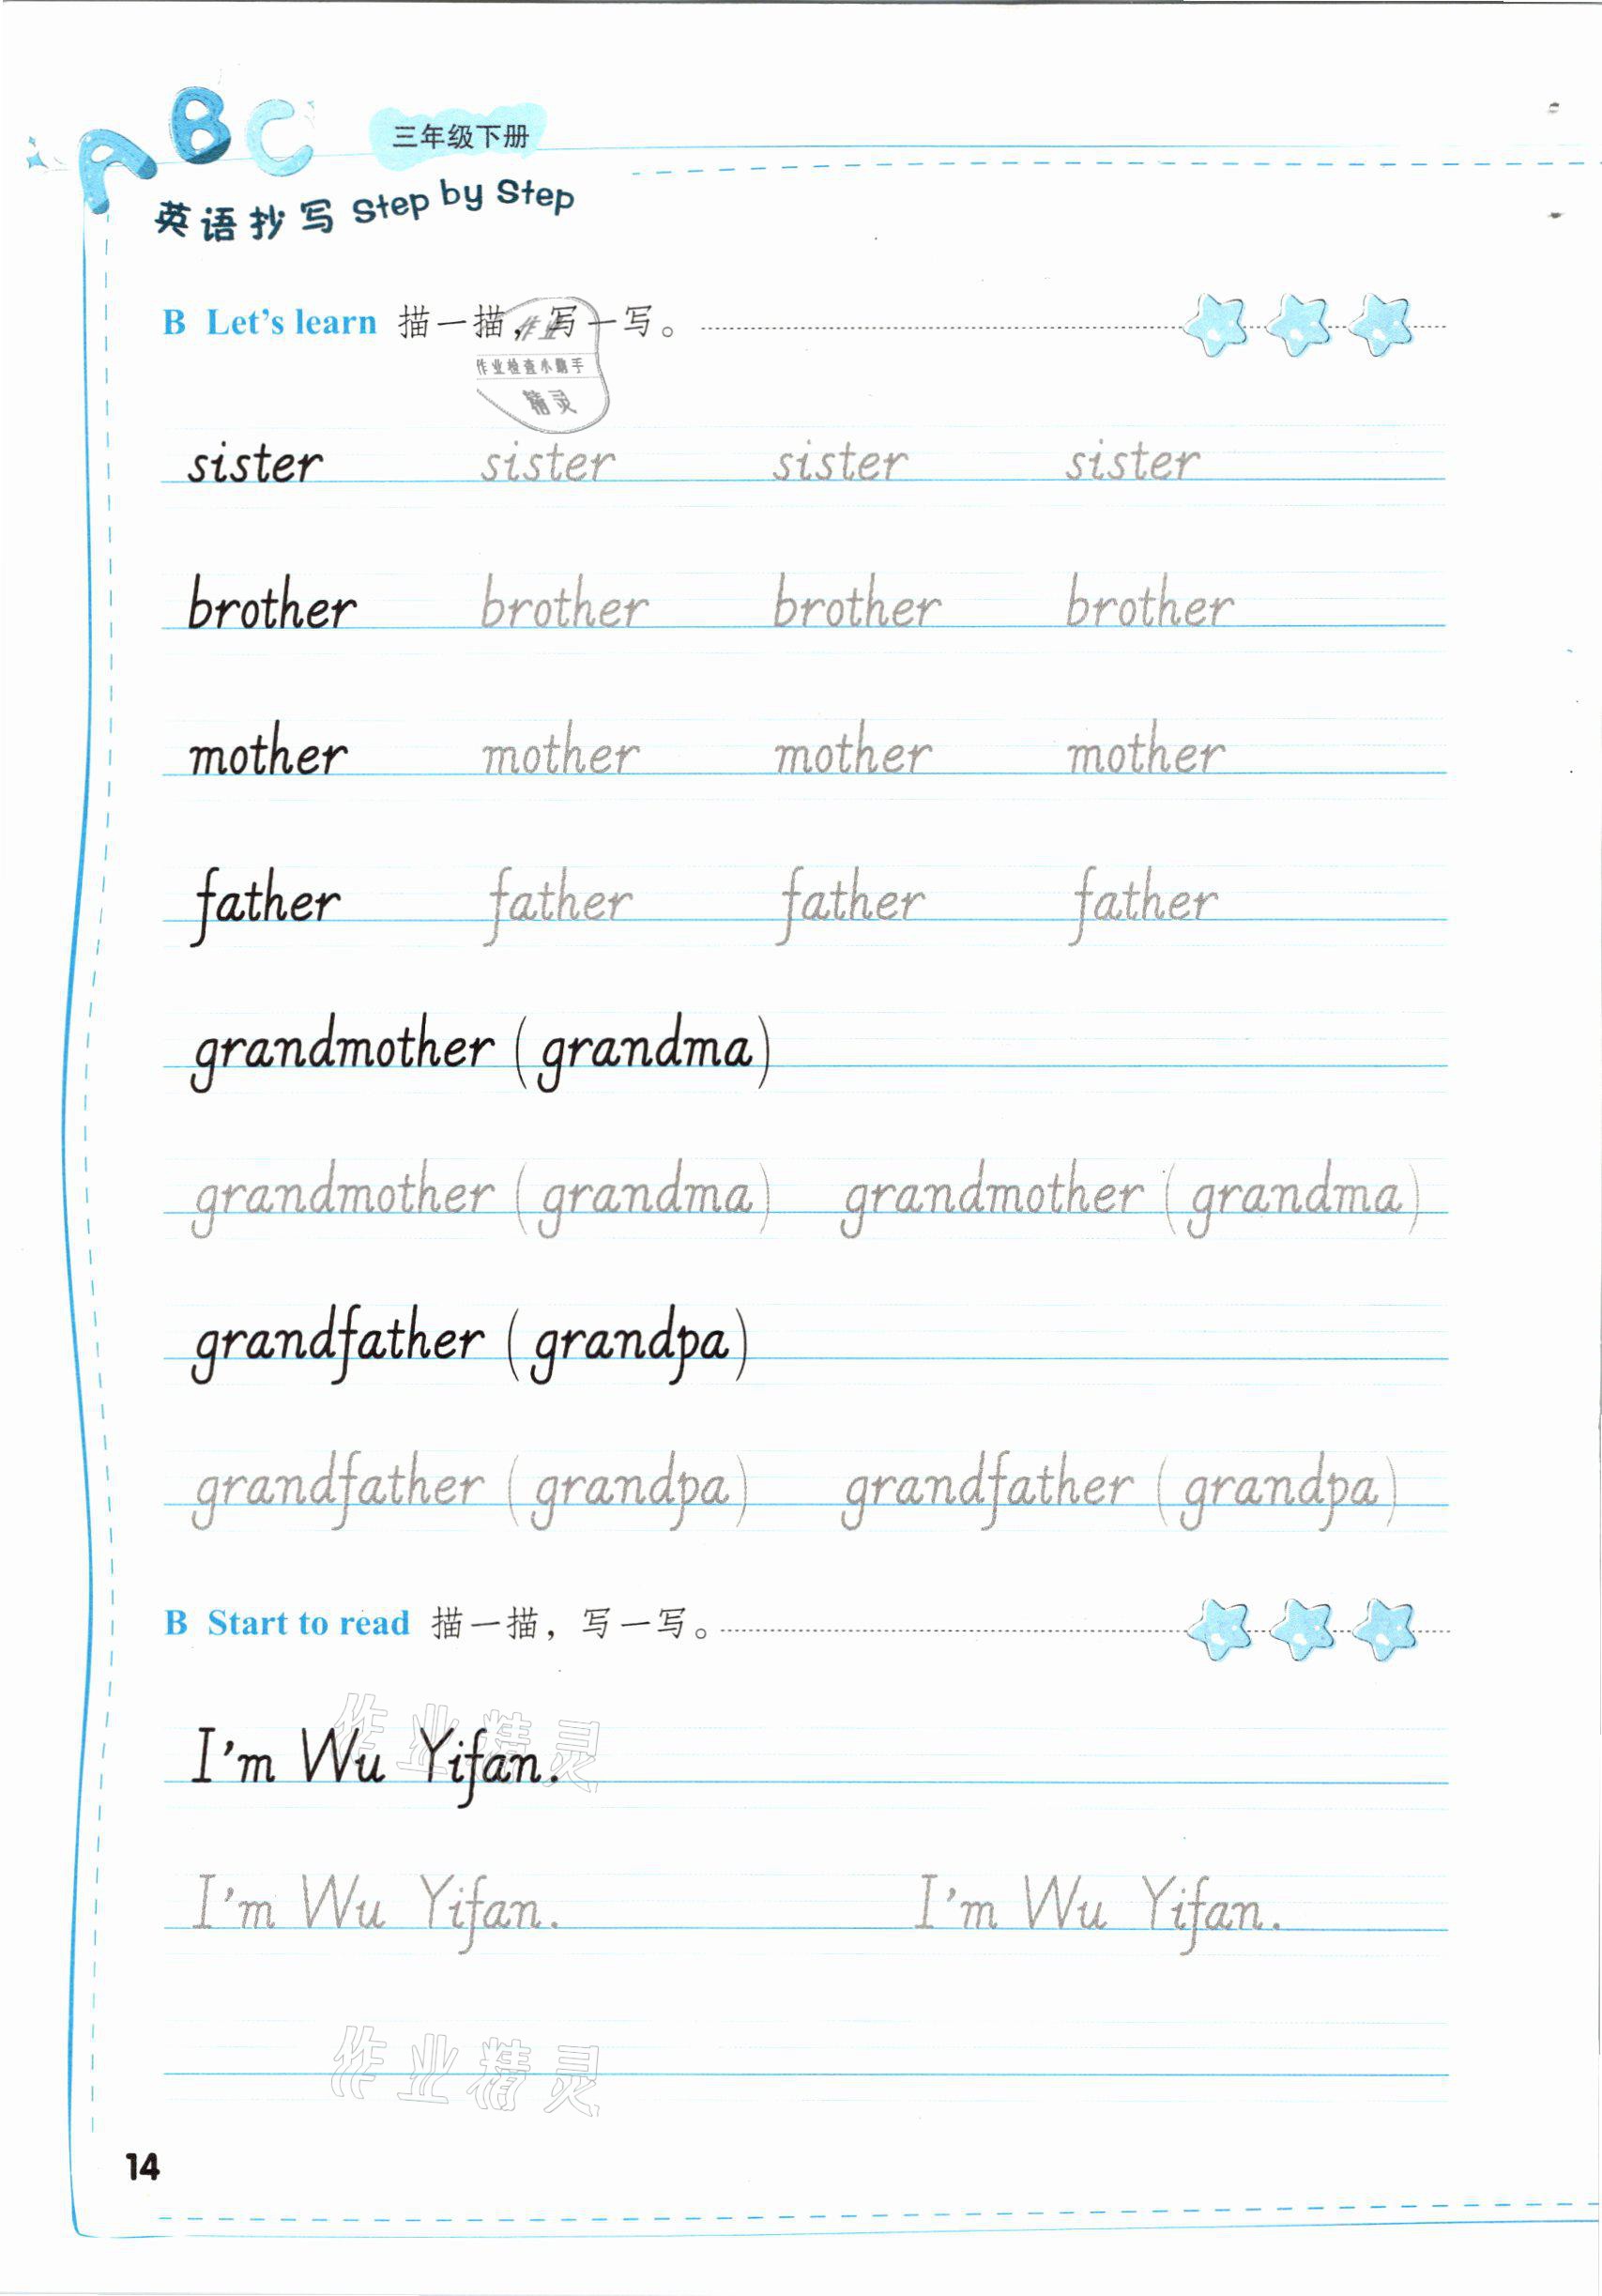 ABC
三年级下册
英语抄写 Step by Step
B Let's learn 描一描，写一写。
作业
作业检查小助手
精灵
sister sister sister sister
brother brother brother brother
mother mother mother mother
father father father father
grandmother (grandma)
grandmother (grandma) grandmother (grandma)
grandfather (grandpa)
grandfather (grandpa) grandfather (grandpa)
B Start to read 描一描，写一写。
作业精灵
I'm Wu Yifan.
I'm Wu Yifan. I'm Wu Yifan.
作业精灵
14